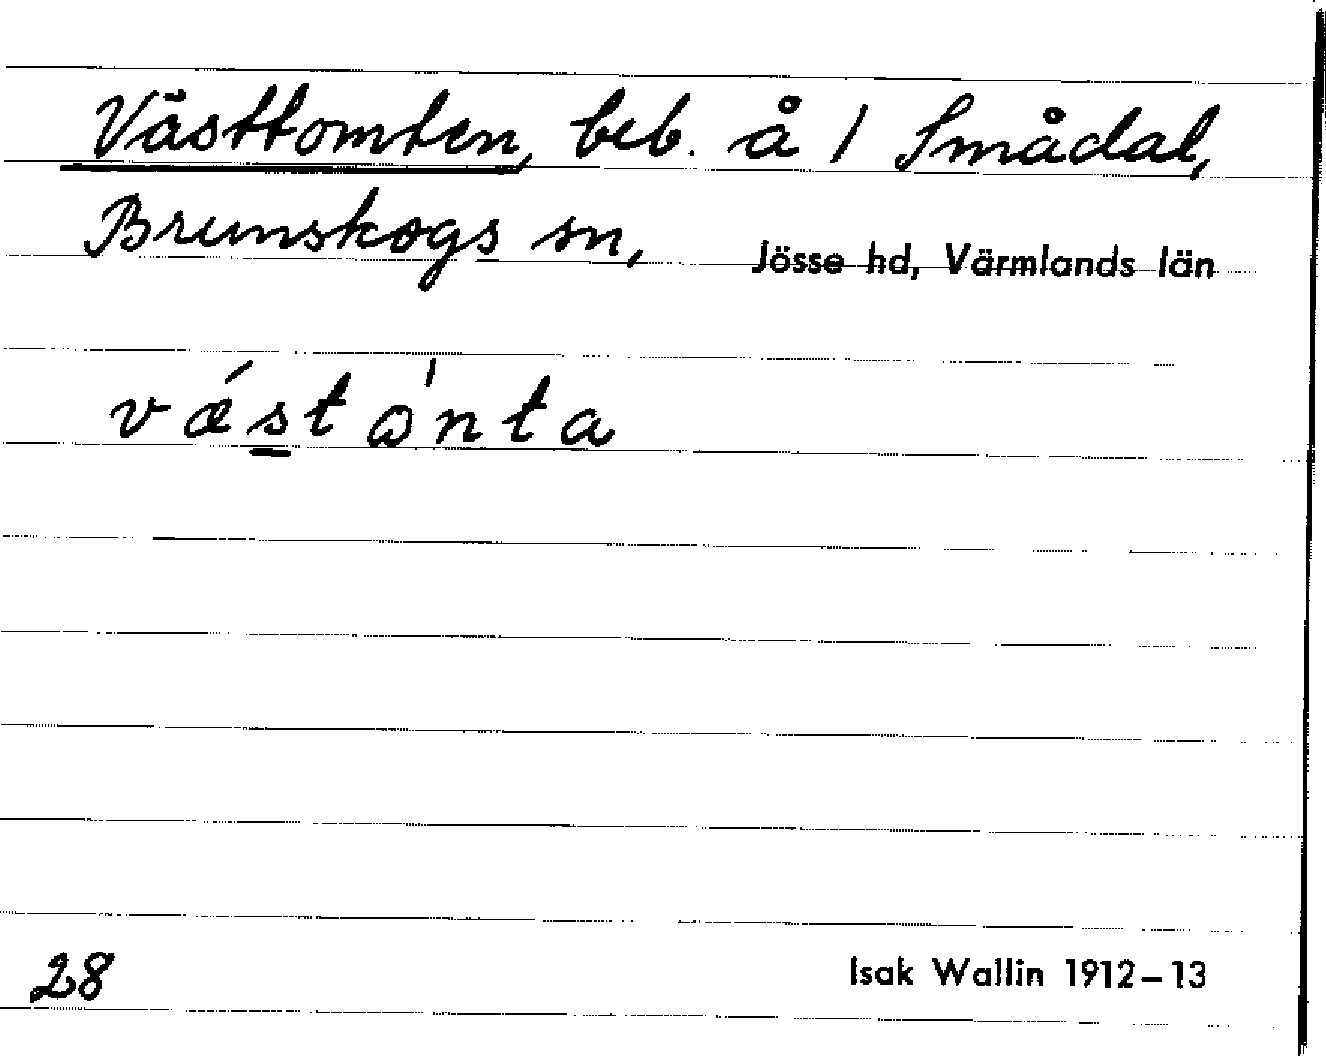 Västtomten, beb. å 1 Smådal,
Brunskogs sn, Jösse hd, Värmlands län
vǽstω̍nta
28
Isak Wallin 1912–13